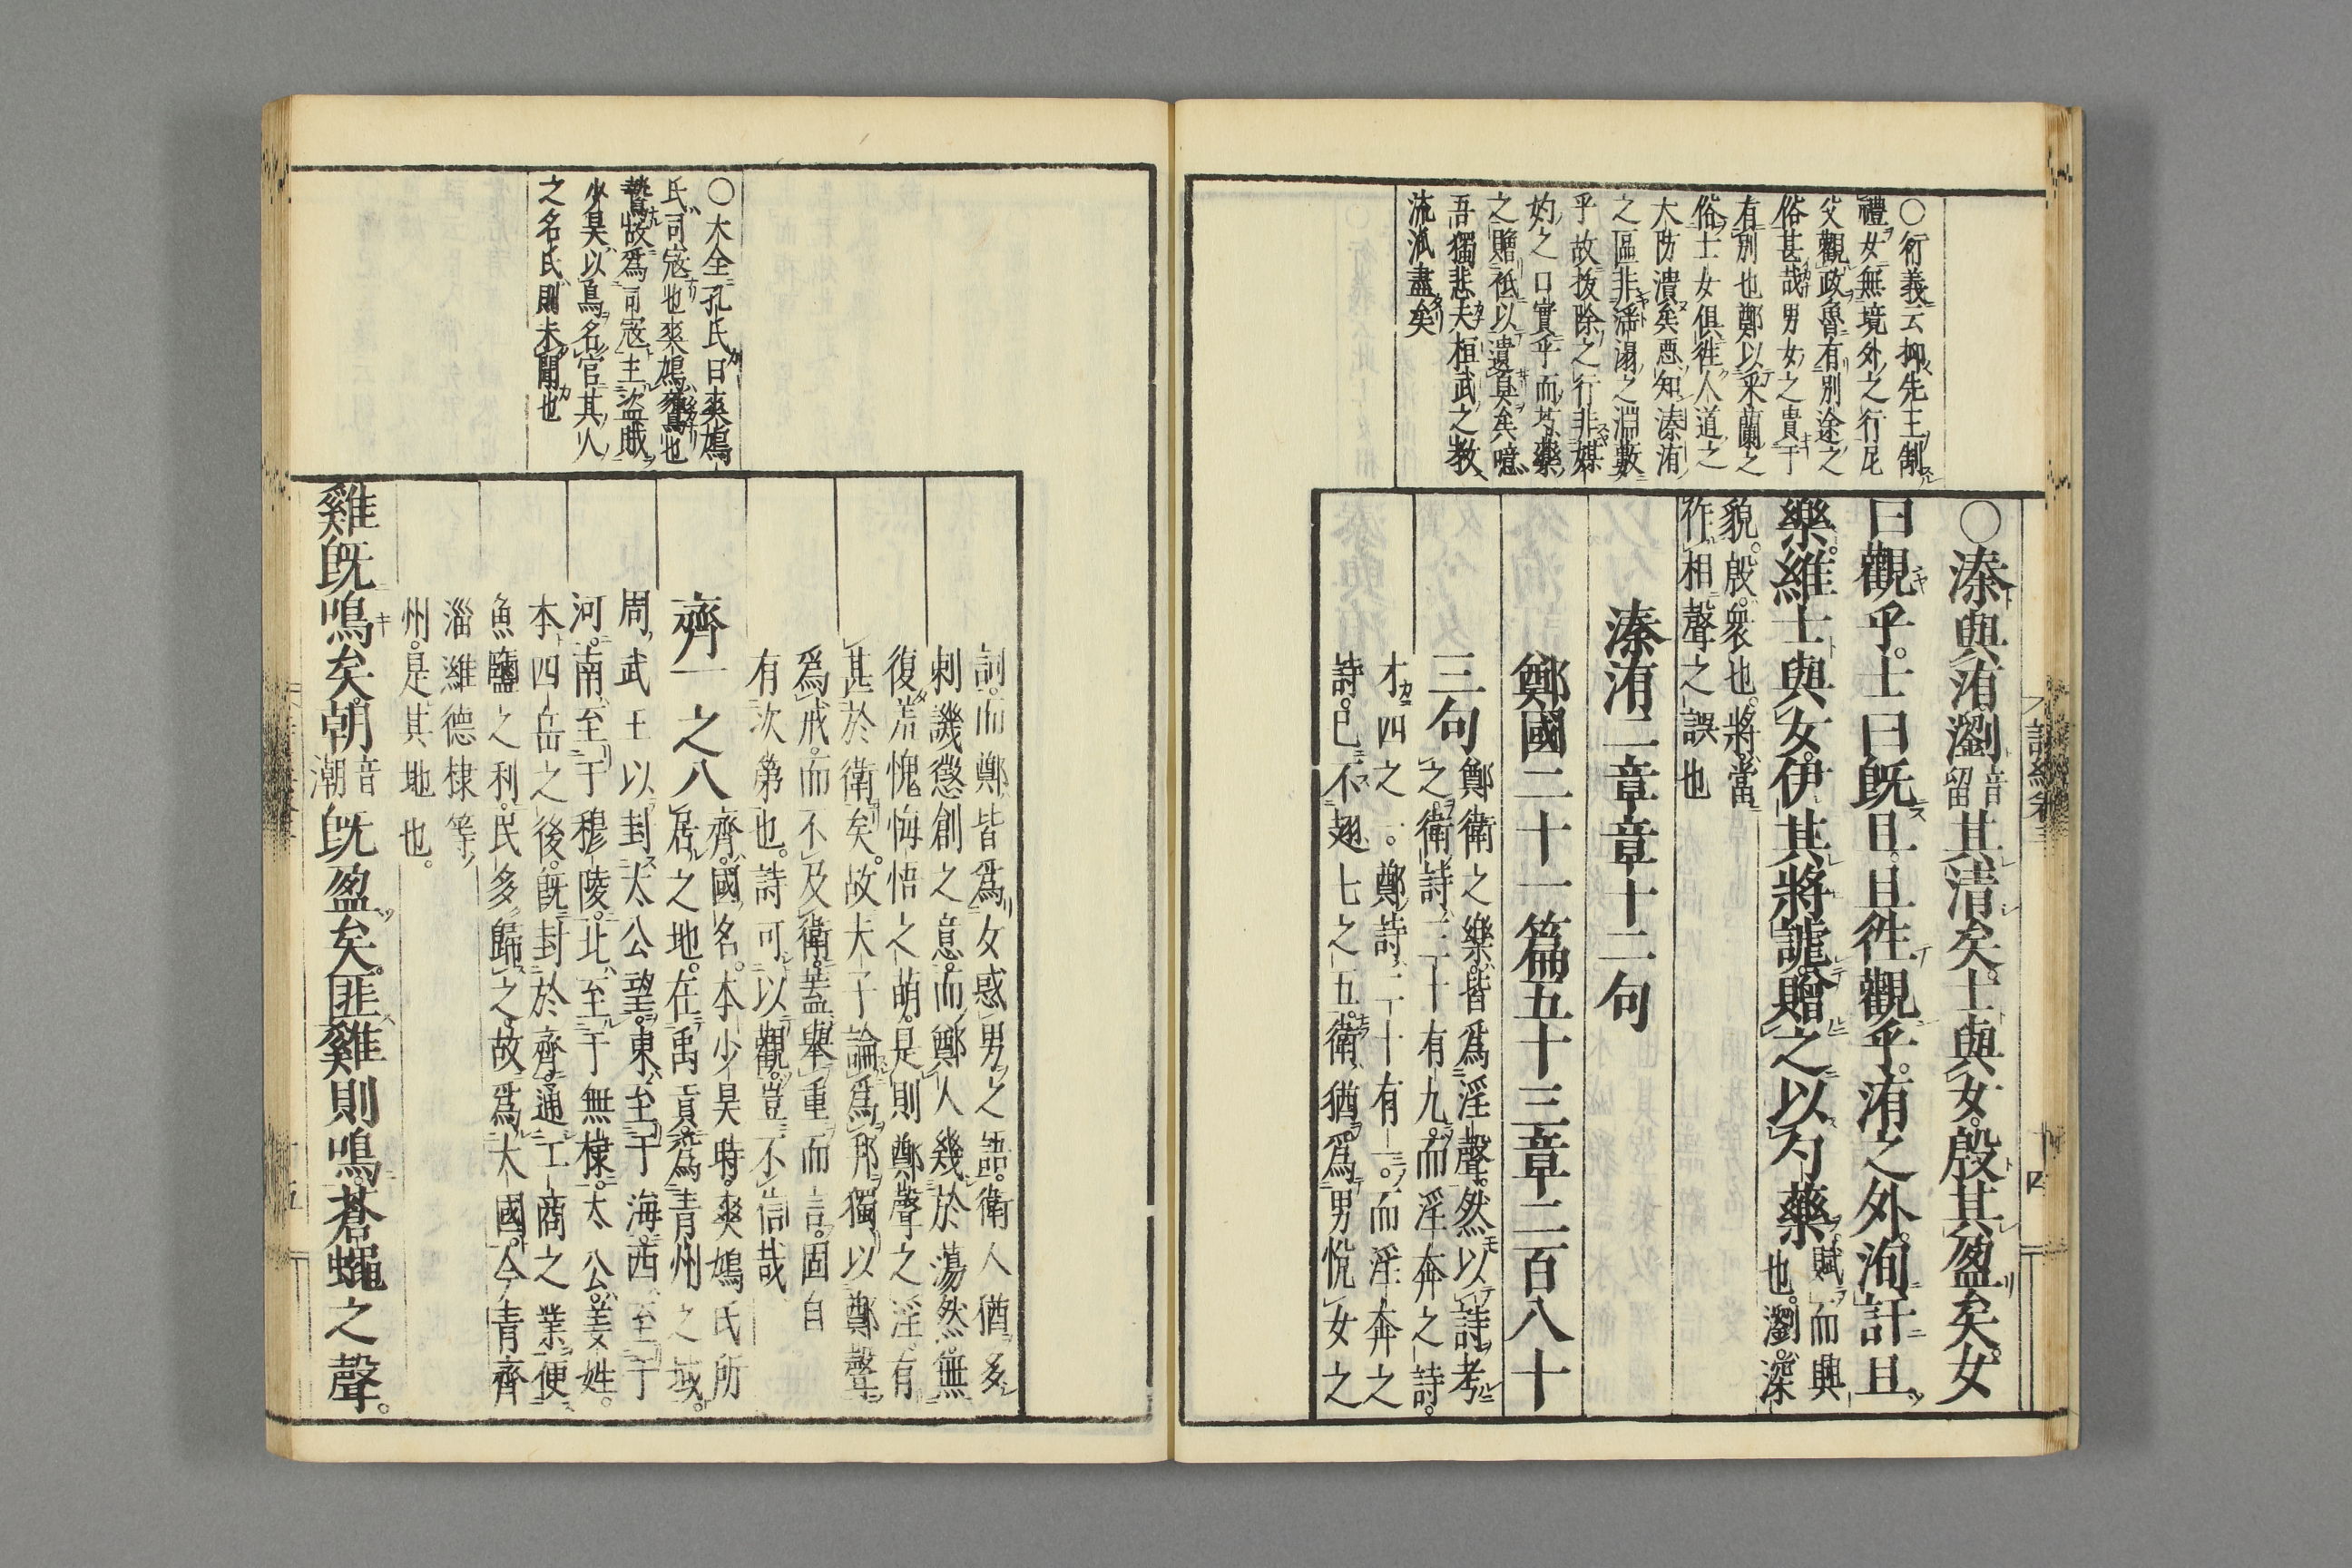 ○衍義云抑先王制
禮女無境外之行尼
父觀政魯有別途之
俗甚哉男女之貴于
有別也鄭以采蘭之
俗士女俱徃人道之
大防潰矣悪知溱洧
之區非滛溺之淵藪
乎故拔除之行非媒
妁之口實乎而芍藥
之贈秪以遺臭矣噫
吾獨悲夫桓武之教
流泒盡矣
○溱與洧瀏音留其清矣士與女殷其盈矣女
曰觀乎士曰旣且且徃觀乎洧之外洵訏且
樂維士與女伊其將謔贈之以勺藥賦而興也瀏深
貌殷衆也將當
作相聲之誤也
溱洧二章章十二句
鄭國二十一篇五十三章二百八十
三句鄭衛之樂皆爲淫聲然以詩考
之衛詩三十有九而淫奔之詩
才四之一鄭詩二十有一而淫奔之
詩已不翅七之五衛猶爲男悅女之
詩經卷三
十四
○大全孔氏曰爽鳩
氏司寇也爽鳩鷹也
鷙故爲司寇主盗賊
少昊以鳥名官其人
之名氏則未聞也
詞而鄭皆爲女惑男之語衛人猶多
刺譏懲創之意而鄭人幾於蕩然無
復羞愧悔悟之萌是則鄭聲之淫有
甚於衛矣故夫子論爲邦獨以鄭聲
爲戒而不及衛蓋舉重而言固自
有次第也詩可以觀豈不信哉
齊一之八齊國名本少昊時爽鳩氏所
居之地在禹貢爲青州之域
周武王以封太公望東至于海西至于
河南至于穆陵北至于無棣太公姜姓
本四岳之後旣封於齊通工商之業便
魚鹽之利民多歸之故爲大國今青齊
淄濰德棣等
州是其地也
雞旣鳴矣朝音潮旣盈矣匪雞則鳴蒼蠅之聲